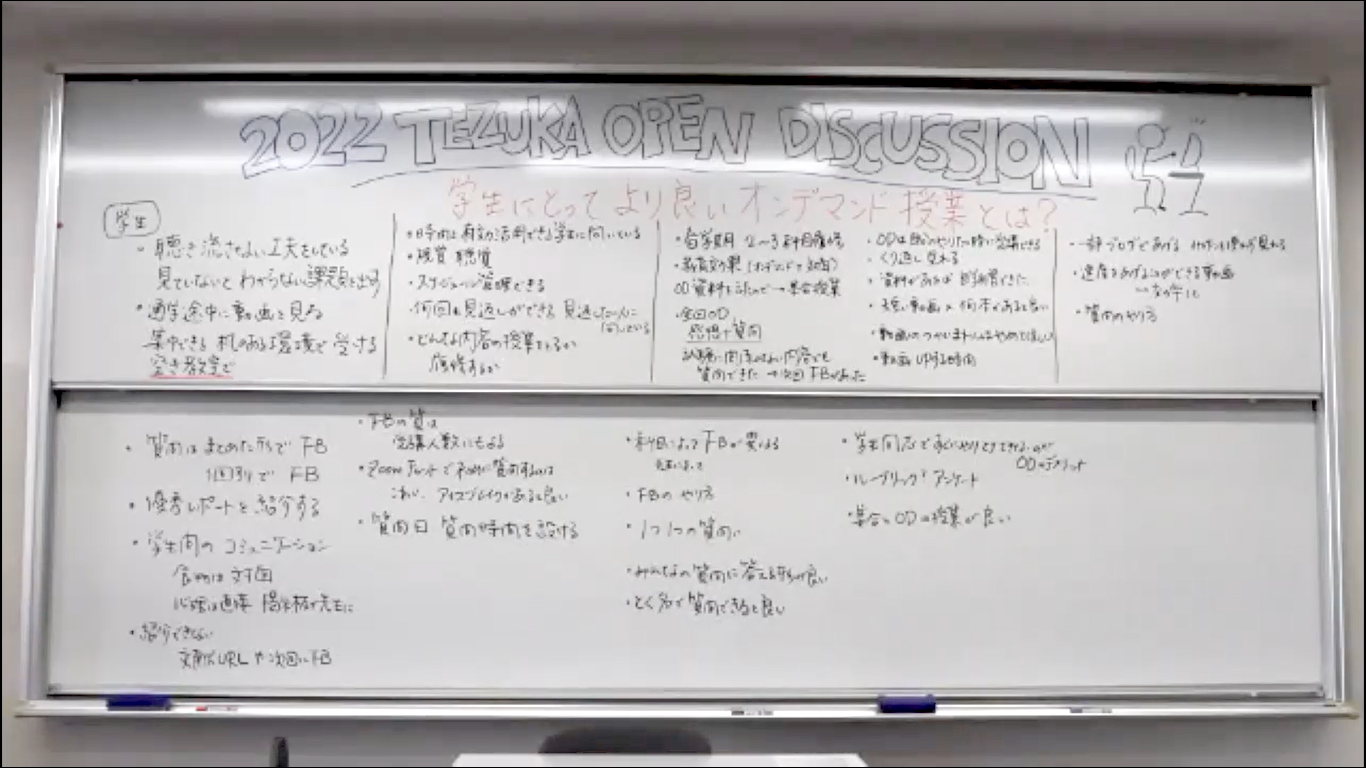 2022 TEZUKA OPEN DISCUSSION
学生にとってより良いオンデマンド授業とは?
学生
・聴き流さない工夫をしている
見ていないとわからない課題を出す
・通学途中に動画を見る
集中できる 机のある環境で受ける
空き教室で
・時間を有効活用できる学生に向いている
・聴覚
・スケジュール管理できる
・何回も見返しができる 見逃した人に
向いている
・どんな内容の授業をとるか
履修するか
・毎学期 2〜3科目履修
・教育効果(オンデマンドで
OD資料を
・全回OD
感想+質問
試験に関係のない内容でも
質問できた →次回FBがあった
・ODは自分のやりたい時に受講できる
・くり返し見れる
・資料があれば
・短い動画×何本かあると良い
・動画のつかいまわしはやめてほしい
・動画 UPする時間
・速度をあげることができる動画
・質問のやり方
・質問はまとめた形で FB
1回1回で FB
・優秀レポートを紹介する
・学生間のコミュニケーション
食物は対面
心理は直接 掲示板で先生に
・紹介できない
文献はURLや次回にFB
・FBの質は
受講人数にもよる
・Zoomチャットで初めに質問するのは
こわい、アイスブレイクがあると良い
・質問日 質問時間を設ける
・科目によって FBが異なる
先生によって
・FBのやり方
・1つ1つの質問に
・みんなの質問に答える形が良い
・とく名で質問できると良い
・学生同志ですぐにやりとりできないのが
ODのデメリット
・ルーブリック? アンケート
・集合とODの授業が良い